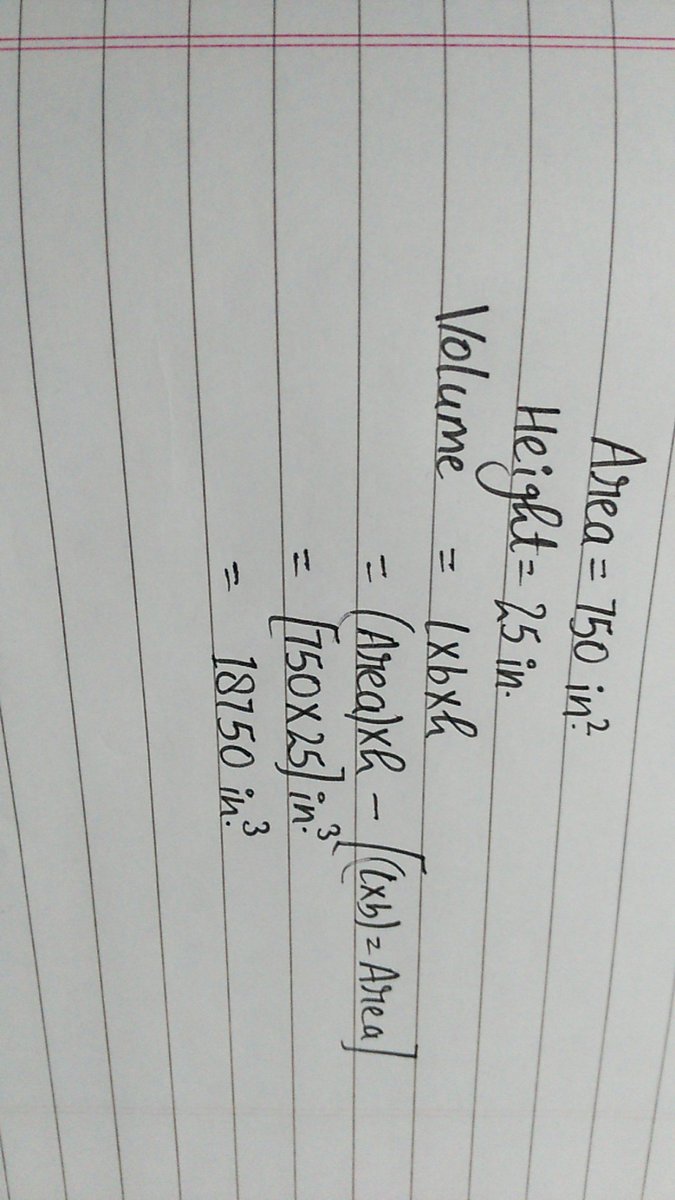 Area = 750 in.²
Height = 25 in.
Volume = l×b×h
= (Area)×h – [(l×b) = Area]
= [750×25] in.³
= 18750 in.³